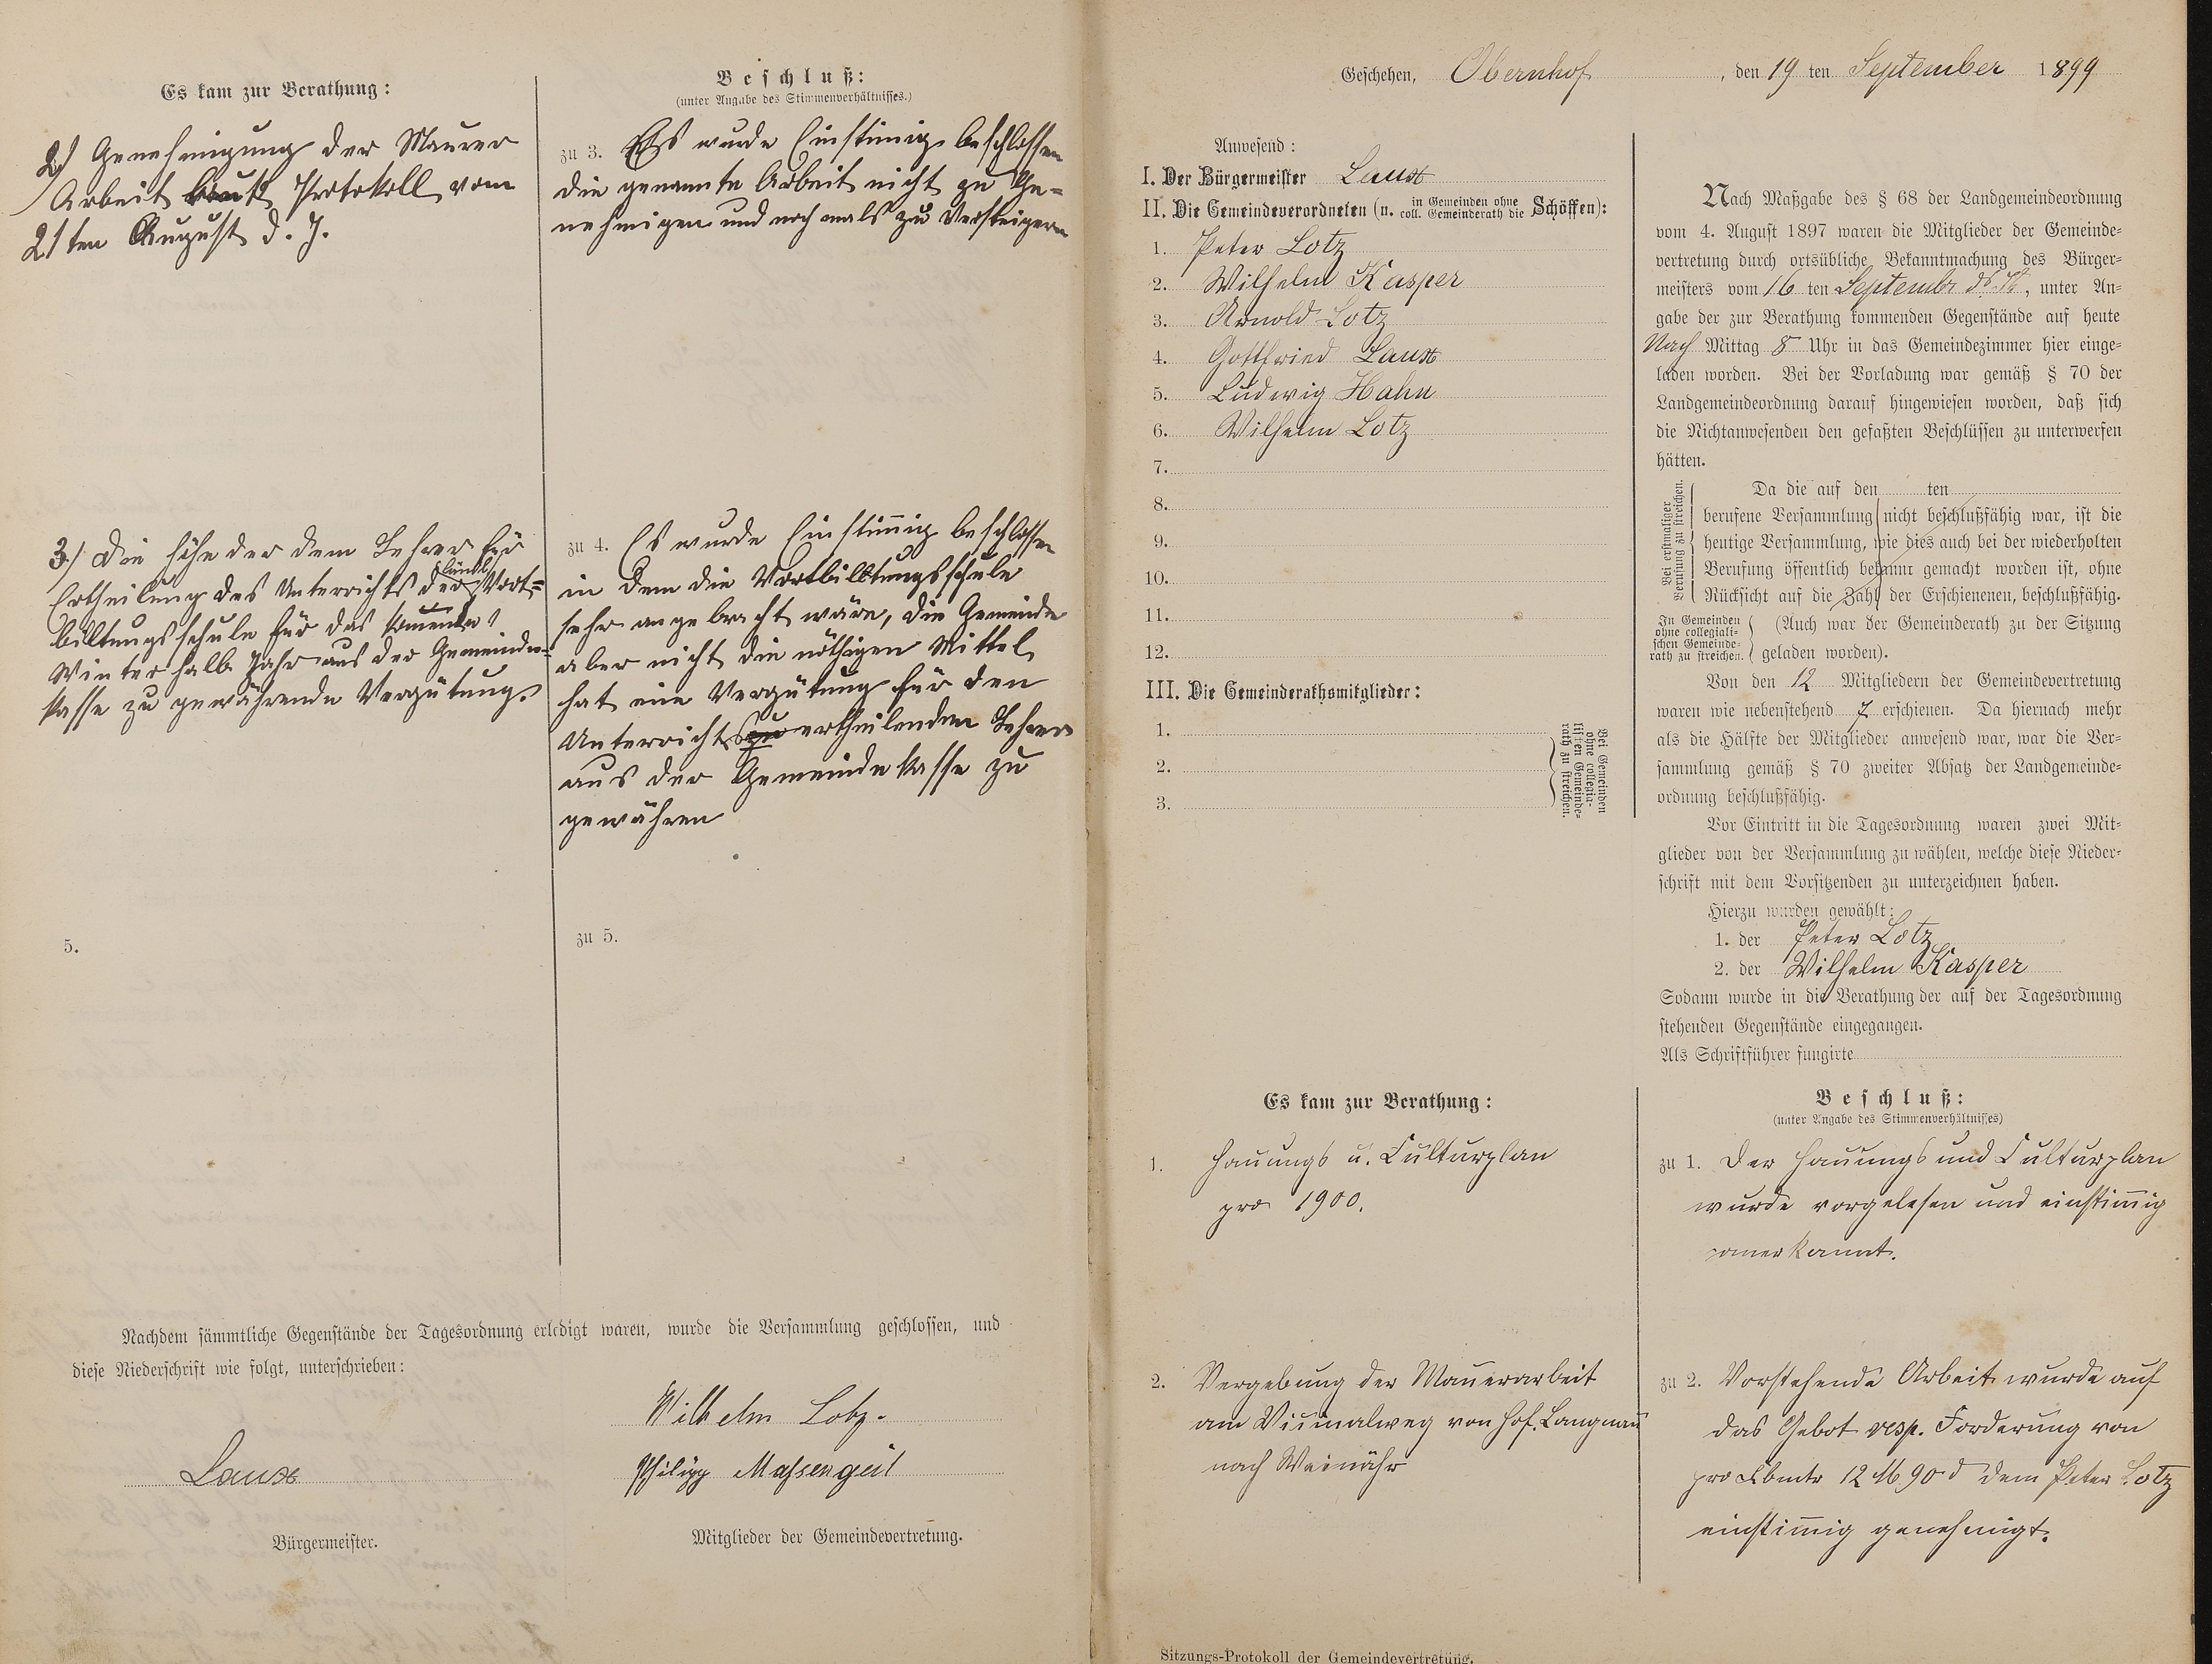 Es kam zur Berathung:
2) Genehmigung der Maurer
Arbeit laut Protokoll vom
21ten August d. J.
3.) Die Höhe der dem Lehrer für
Ertheilung des Unterrichts der ländl. Fort-
bildungsschule für das kommende
Winterhalb Jahr aus der Gemeinde-
kasse zu gewährende Vergütung.
5.
Beschluß:
(unter Angabe des Stimmenverhältnisses.)
zu 3. Es wurde Einstimig beschlossen
die genannte Arbeit nicht zu Ge-
nehmigen und noch mals zu Versteigern
zu 4. Es wurde Einstimig beschlossen
in dem die Fortbildungsschule
sehr angebracht wäre, die Gemeinde
aber nicht die nöthigen Mittel
hat eine Vergütung für den
Unterricht zu ertheilenden Lehrer
aus der Gemeindekasse zu
gewähren
zu 5.
Nachdem sämmtliche Gegenstände der Tagesordnung erledigt waren, wurde die Versammlung geschlossen, und
diese Niederschrift wie folgt, unterschrieben:
Wilhelm Lotz.
Laux
Philipp Massengeil
Bürgermeister.
Mitglieder der Gemeindevertretung.
Geschehen, Obernhof, den 19 ten September 1899
Anwesend:
I. Der Bürgermeister Laux
II. Die Gemeindeverordneten (u. in Gemeinden ohne coll. Gemeinderath die Schöffen):
1. Peter Lotz
2. Wilhelm Kasper
3. Arnold Lotz
4. Gottfried Laux
5. Ludwig Hahn
6. Wilhelm Lotz
7.
8.
9.
10.
11.
12.
III. Die Gemeinderathsmitglieder:
1.
2.
3.
Bei Gemeinden
ohne collegia-
lischen Gemeinde-
rath zu streichen.
Nach Maßgabe des § 68 der Landgemeindeordnung
vom 4. August 1897 waren die Mitglieder der Gemeinde-
vertretung durch ortsübliche Bekanntmachung des Bürger-
meisters vom 16 ten Septembr ds. Js., unter An-
gabe der zur Berathung kommenden Gegenstände auf heute
Nach Mittag 8 Uhr in das Gemeindezimmer hier einge-
laden worden. Bei der Vorladung war gemäß § 70 der
Landgemeindeordnung darauf hingewiesen worden, daß sich
die Nichtanwesenden den gefaßten Beschlüssen zu unterwerfen
hätten.
Bei erstmaliger
Berufung zu streichen.
Da die auf den ten
berufene Versammlung nicht beschlußfähig war, ist die
heutige Versammlung, wie dies auch bei der wiederholten
Berufung öffentlich bekannt gemacht worden ist, ohne
Rücksicht auf die Zahl der Erschienenen, beschlußfähig.
In Gemeinden
ohne collegiali-
schen Gemeinde-
rath zu streichen.
(Auch war der Gemeinderath zu der Sitzung
geladen worden).
Von den 12 Mitgliedern der Gemeindevertretung
waren wie nebenstehend 7 erschienen. Da hiernach mehr
als die Hälfte der Mitglieder anwesend war, war die Ver-
sammlung gemäß § 70 zweiter Absatz der Landgemeinde-
ordnung beschlußfähig.
Vor Eintritt in die Tagesordnung waren zwei Mit-
glieder von der Versammlung zu wählen, welche diese Nieder-
schrift mit dem Vorsitzenden zu unterzeichnen haben.
Hierzu wurden gewählt:
1. der Peter Lotz
2. der Wilhelm Kasper
Sodann wurde in die Berathung der auf der Tagesordnung
stehenden Gegenstände eingegangen.
Als Schriftführer fungirte
Es kam zur Berathung:
1. Hauungs u. Culturplan
pro 1900.
2. Vergebung der Mauerarbeit
am Vicinalweg von Hof. Langnau
nach Weinähr
Beschluß:
(unter Angabe des Stimmenverhältnisses)
zu 1. Der Hauungs und Culturplan
wurde vorgelesen und einstimig
anerkannt.
zu 2. Vorstehende Arbeit wurde auf
das Gebot resp. Forderung von
pro Cbmtr 12 M 90 d dem Peter Lotz
einstimig genehmigt.
Sitzungs-Protokoll der Gemeindevertretung.